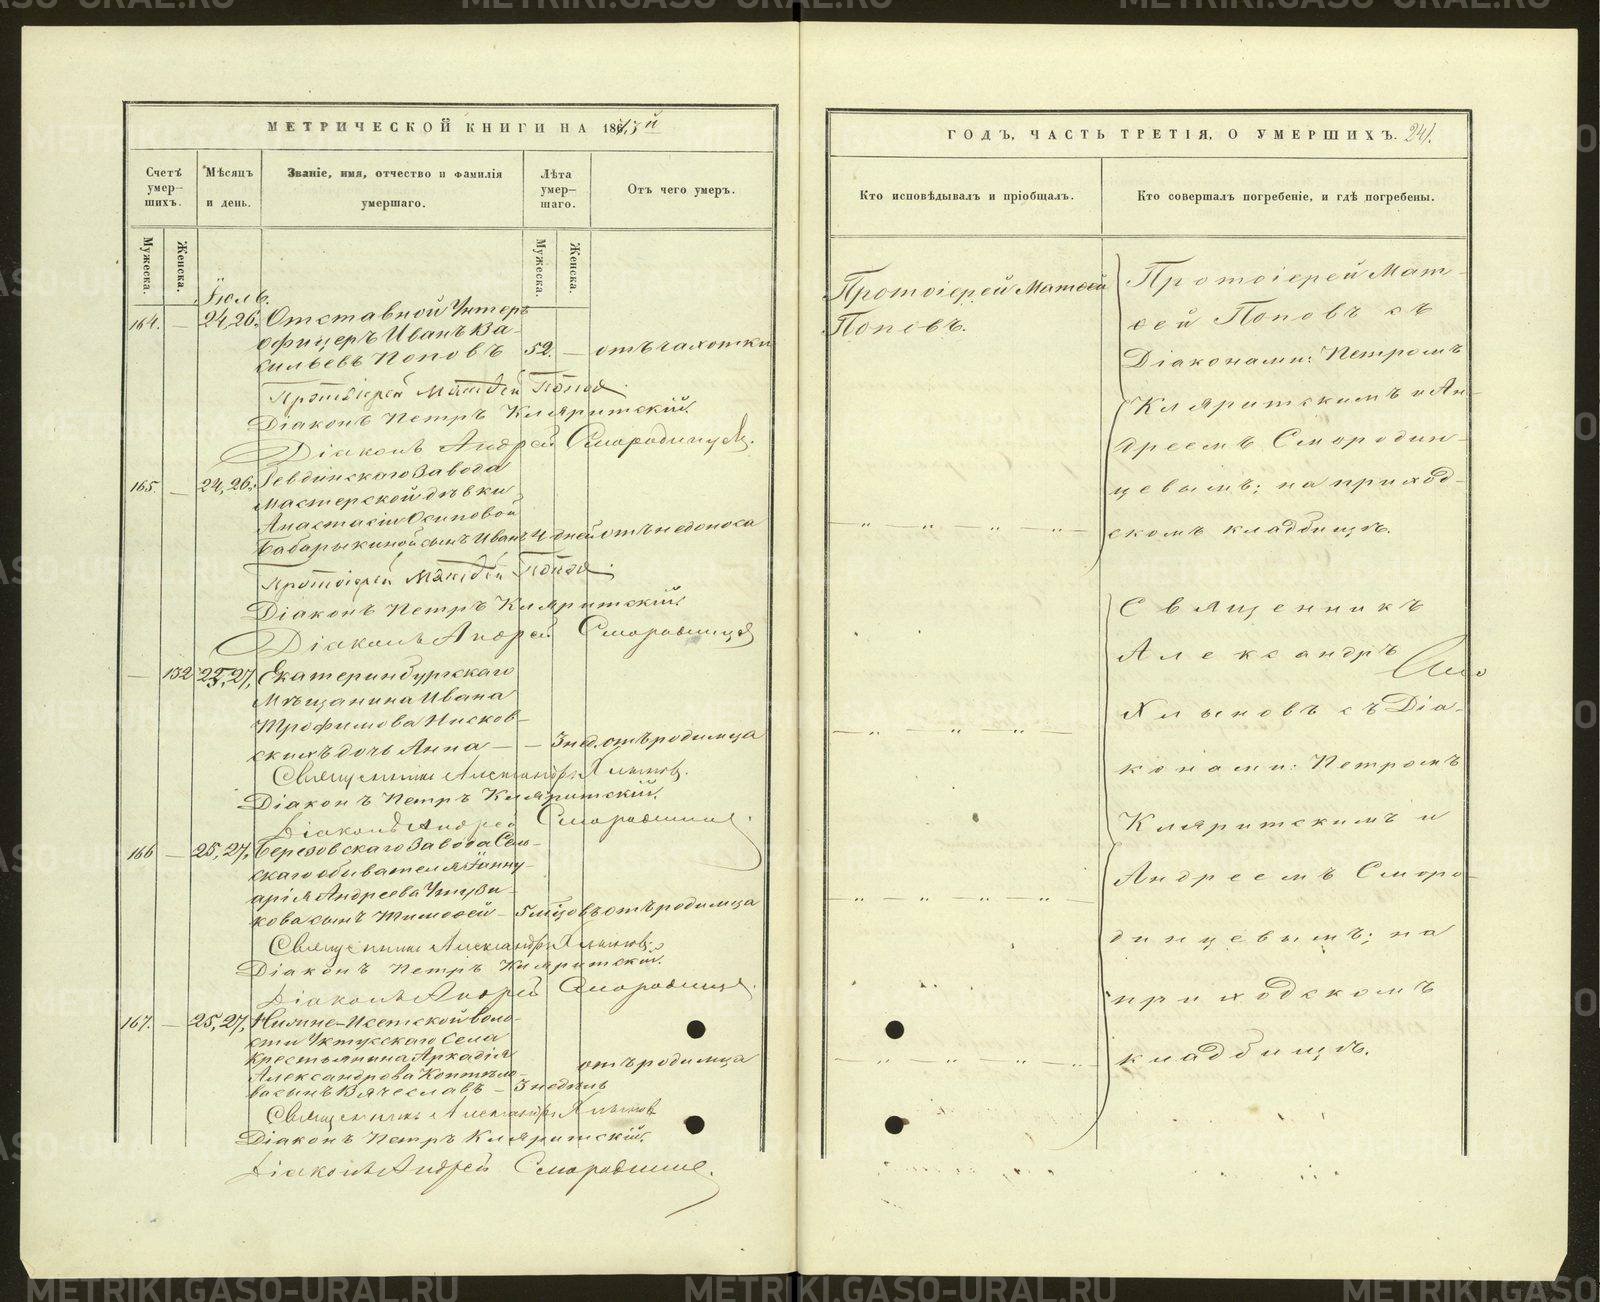 МЕТРИЧЕСКОЙ КНИГИ НА 1867й
Счетъ умершихъ.
Мѣсяцъ и день.
Званіе, имя, отчество и фамилія умершаго.
Лѣта умершаго.
Отъ чего умеръ.
Мужеска.
Женска.
Мужеска.
Женска.
Іюль.
164. — 24, 26. Отставной Унтеръ
офицеръ Иванъ Ва-
сильевъ Поповъ 52. — отъ чахотки
Протоіерей Матѳей Поповъ
Діаконъ Петръ Кляритскій.
Діаконъ Андрей Смородинцевъ.
165. — 24, 26. Ревдинскаго Завода
мастерской дѣвки
Анастасіи Осиповой
Бабарыкиной сынъ Иванъ 4 дней отъ недоноса
Протоіерей Матѳей Поповъ
Діаконъ Петръ Кляритскій.
Діаконъ Андрей Смородинцевъ
— 132 25, 27, Екатеринбургскаго
Мѣщанина Ивана
Трофимова
скихъ дочь Анна — — 3 нед. отъ родимца
Священникъ Александръ Хлыновъ.
Діаконъ Петръ Кляритскій.
Діаконъ Андрей Смородинцевъ.
166 — 25, 27, Березовскаго Завода Сель-
скаго обывателя Іанну-
арія Андреева
кова сынъ Тимоѳей — 5 мѣсцовъ отъ родимца
Священникъ Александръ Хлыновъ.
Діаконъ Петръ Кляритскій.
Діаконъ Андрей Смородинцевъ.
167. — 25, 27, Нижне-Исетской воло-
сти Уктусскаго Села
Крестьянина Аркадія
Александрова Коптяло-
ва сынъ Вячеславъ — 3 недѣль отъ родимца
Священникъ Александръ Хлыновъ
Діаконъ Петръ Кляритскій.
Діаконъ Андрей Смородинцевъ.
ГОДЪ, ЧАСТЬ ТРЕТІЯ, О УМЕРШИХЪ. 241.
Кто исповѣдывалъ и пріобщалъ.
Кто совершалъ погребеніе, и гдѣ погребены.
Протоіерей Матѳей
Поповъ.
Протоіерей Мат-
ѳей Поповъ съ
Діаконами: Петромъ
Кляритскимъ и Ан-
дреемъ Смородин-
цевымъ; на приход-
скомъ кладбищѣ.
Священникъ
Александръ
Хлыновъ съ Діа-
конами: Петромъ
Кляритскимъ и
Андреемъ Сморо-
динцевымъ; на
приходскомъ
кладбищѣ.
METRIKI.GASO-URAL.RU